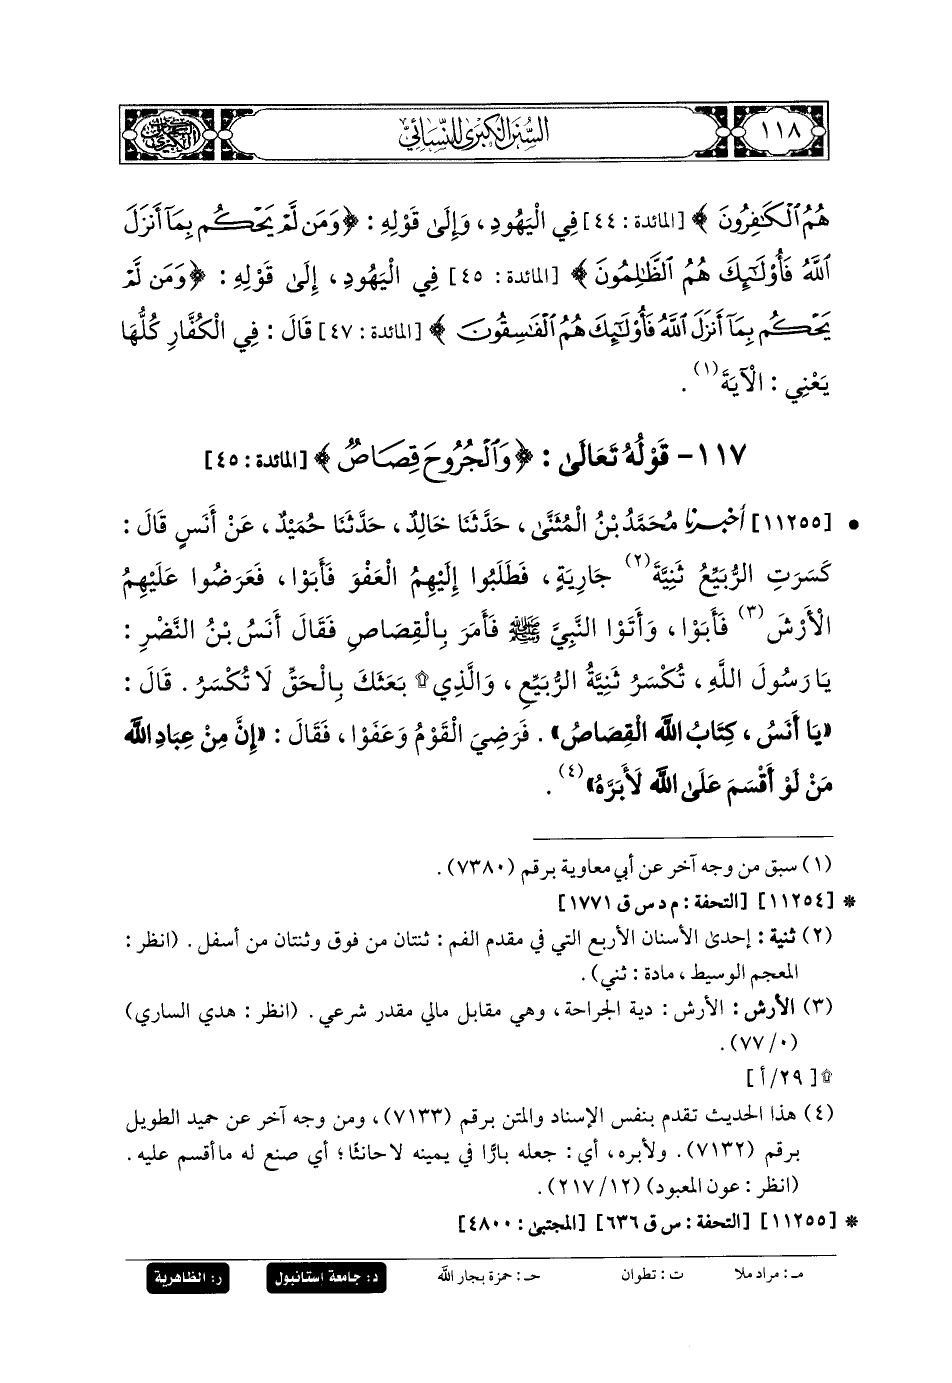 ١١٨
السنن الكبرى للنسائي
هُمُ ٱلْكَٰفِرُونَ ﴾ [المائدة : ٤٤] فِي الْيَهُودِ ، وَإِلَىٰ قَوْلِهِ : ﴿ وَمَن لَّمْ يَحْكُم بِمَآ أَنزَلَ
ٱللَّهُ فَأُوْلَٰٓئِكَ هُمُ ٱلظَّٰلِمُونَ ﴾ [المائدة : ٤٥] فِي الْيَهُودِ ، إِلَىٰ قَوْلِهِ : ﴿ وَمَن لَّمْ
يَحْكُم بِمَآ أَنزَلَ ٱللَّهُ فَأُوْلَٰٓئِكَ هُمُ ٱلْفَٰسِقُونَ ﴾ [المائدة : ٤٧] قَالَ : فِي الْكُفَّارِ كُلُّهَا
يَعْنِي : الْآيَةَ(١) .
١١٧- قَوْلُهُ تَعَالَىٰ : ﴿ وَٱلْجُرُوحَ قِصَاصٌ ﴾ [المائدة : ٤٥]
• [١١٢٥٥] أَخْبَرَنَا مُحَمَّدُ بْنُ الْمُثَنَّىٰ ، حَدَّثَنَا خَالِدٌ ، حَدَّثَنَا حُمَيْدٌ ، عَنْ أَنَسٍ قَالَ :
كَسَرَتِ الرُّبَيِّعُ ثَنِيَّةَ(٢) جَارِيَةٍ ، فَطَلَبُوا إِلَيْهِمُ الْعَفْوَ فَأَبَوْا ، فَعَرَضُوا عَلَيْهِمُ
الْأَرْشَ(٣) فَأَبَوْا ، وَأَتَوُا النَّبِيَّ ﷺ فَأَمَرَ بِالْقِصَاصِ فَقَالَ أَنَسُ بْنُ النَّضْرِ :
يَا رَسُولَ اللَّهِ ، تُكْسَرُ ثَنِيَّةُ الرُّبَيِّعِ ، وَالَّذِي۩ بَعَثَكَ بِالْحَقِّ لَا تُكْسَرُ . قَالَ :
«يَا أَنَسُ ، كِتَابُ اللَّهِ الْقِصَاصُ» . فَرَضِيَ الْقَوْمُ وَعَفَوْا ، فَقَالَ : «إِنَّ مِنْ عِبَادِ اللَّهِ
مَنْ لَوْ أَقْسَمَ عَلَى اللَّهِ لَأَبَرَّهُ»(٤) .
(١) سبق من وجه آخر عن أبي معاوية برقم (٧٣٨٠) .
* [١١٢٥٤] [التحفة : م د س ق ١٧٧١]
(٢) ثنية : إحدى الأسنان الأربع التي في مقدم الفم : ثنتان من فوق وثنتان من أسفل . (انظر :
المعجم الوسيط ، مادة : ثني) .
(٣) الأرش : الأرش : دية الجراحة ، وهي مقابل مالي مقدر شرعي . (انظر : هدي الساري)
(٠/ ٧٧) .
۩ [ ٢٩/ أ ]
(٤) هذا الحديث تقدم بنفس الإسناد والمتن برقم (٧١٣٣) ، ومن وجه آخر عن حميد الطويل
برقم (٧١٣٢) . ولأبره ، أي : جعله بارًّا في يمينه لا حانثا ؛ أي صنع له ما أقسم عليه .
(انظر : عون المعبود) (١٢/ ٢١٧) .
* [١١٢٥٥] [التحفة : س ق ٦٣٦] [المجتبى : ٤٨٠٠]
مـ : مراد ملا ت : تطوان حـ : حمزة بجار الله د : جامعة استانبول ر : الظاهرية